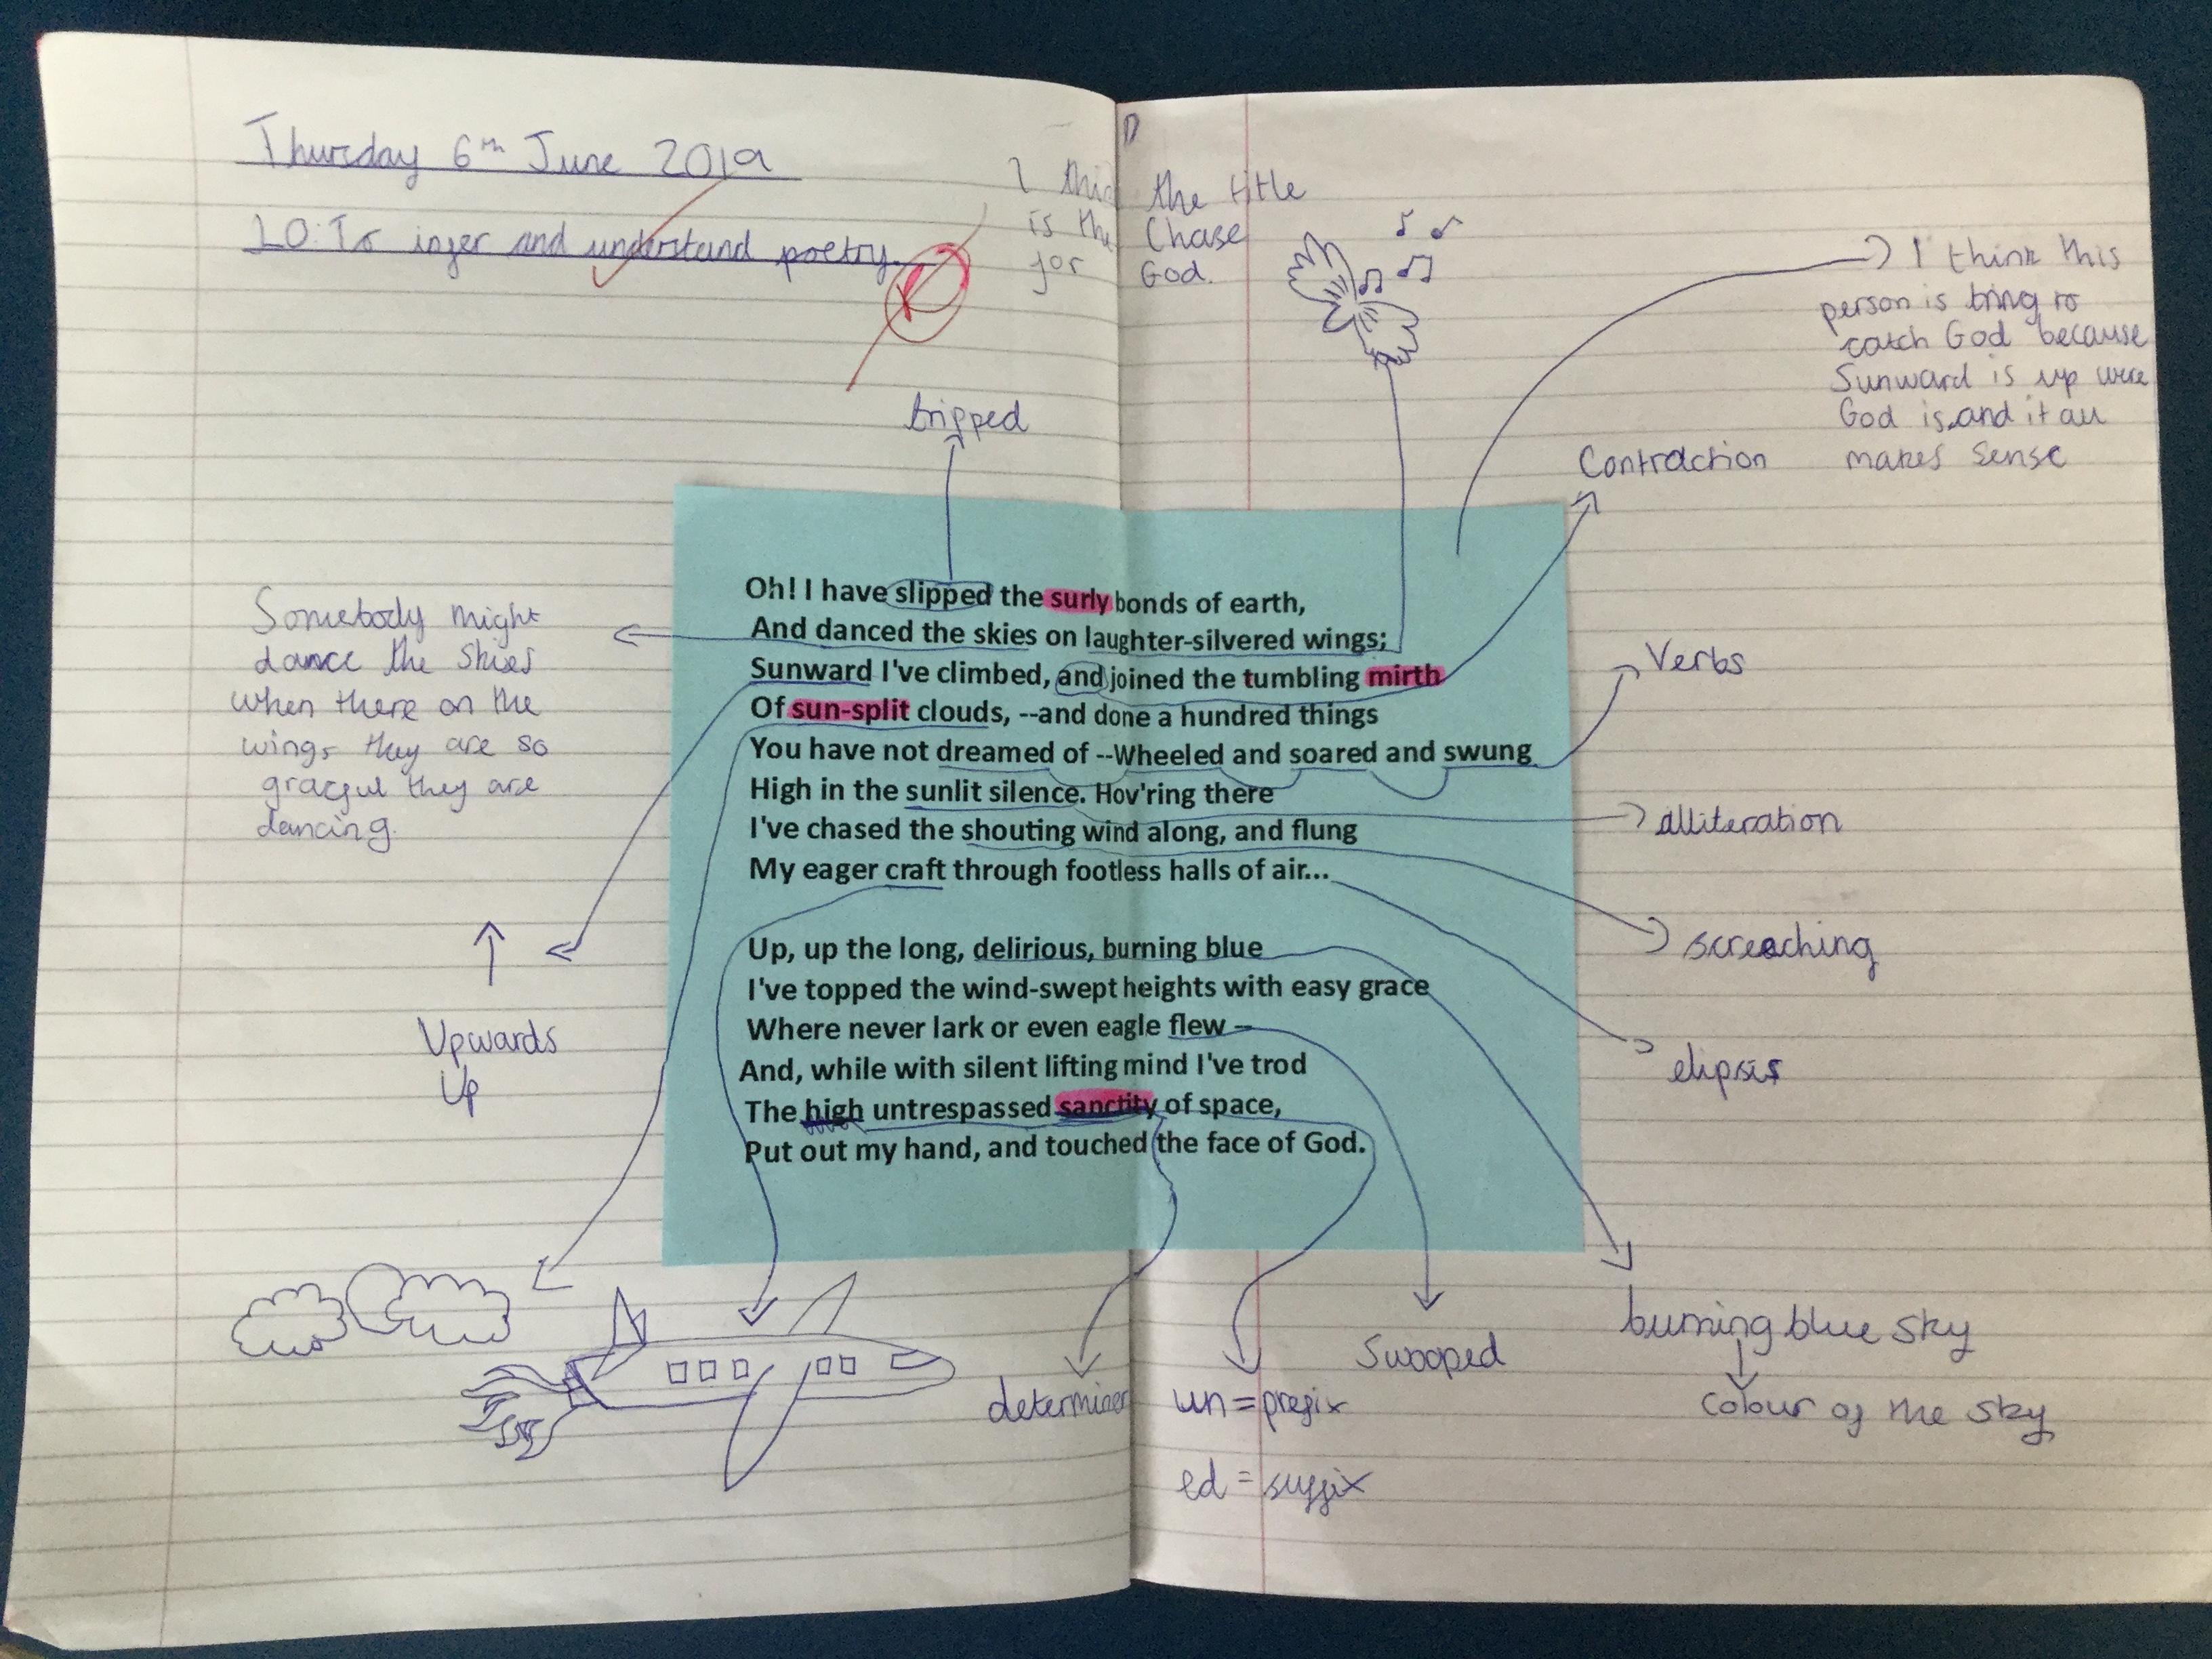 Thursday 6th June 2019
LO: To infer and understand poetry.
I think the title
is the Chase
for God.
I think this
person is tring to
catch God because
Sunward is up were
God is and it all
makes sense
tripped
Contraction
Oh! I have slipped the surly bonds of earth,
And danced the skies on laughter-silvered wings;
Sunward I've climbed, and joined the tumbling mirth
Of sun-split clouds, --and done a hundred things
You have not dreamed of --Wheeled and soared and swung
High in the sunlit silence. Hov'ring there
I've chased the shouting wind along, and flung
My eager craft through footless halls of air...
Up, up the long, delirious, burning blue
I've topped the wind-swept heights with easy grace
Where never lark or even eagle flew --
And, while with silent lifting mind I've trod
The high untrespassed sanctity of space,
Put out my hand, and touched the face of God.
Somebody might
dance the skies
when there on the
wings they are so
graceful they are
dancing.
Upwards
Up
Verbs
alliteration
screaching
elipsis
determiner
un = prefix
ed = suffix
Swooped
burning blue sky
colour of the sky